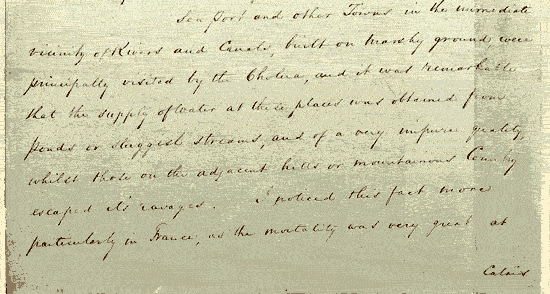 Sea Port and other Towns in the immediate
vicinity of Rivers and Canals, built on marshy ground, were
principally visited by the Cholera, and it was remarkable
that the supply of water at these places was obtained from
ponds or sluggish streams, and of a very impure quality,
whilst those on the adjacent hills or mountainous Country
escaped it's ravages. I noticed this fact more
particularly in France, as the mortality was very great at
Calais